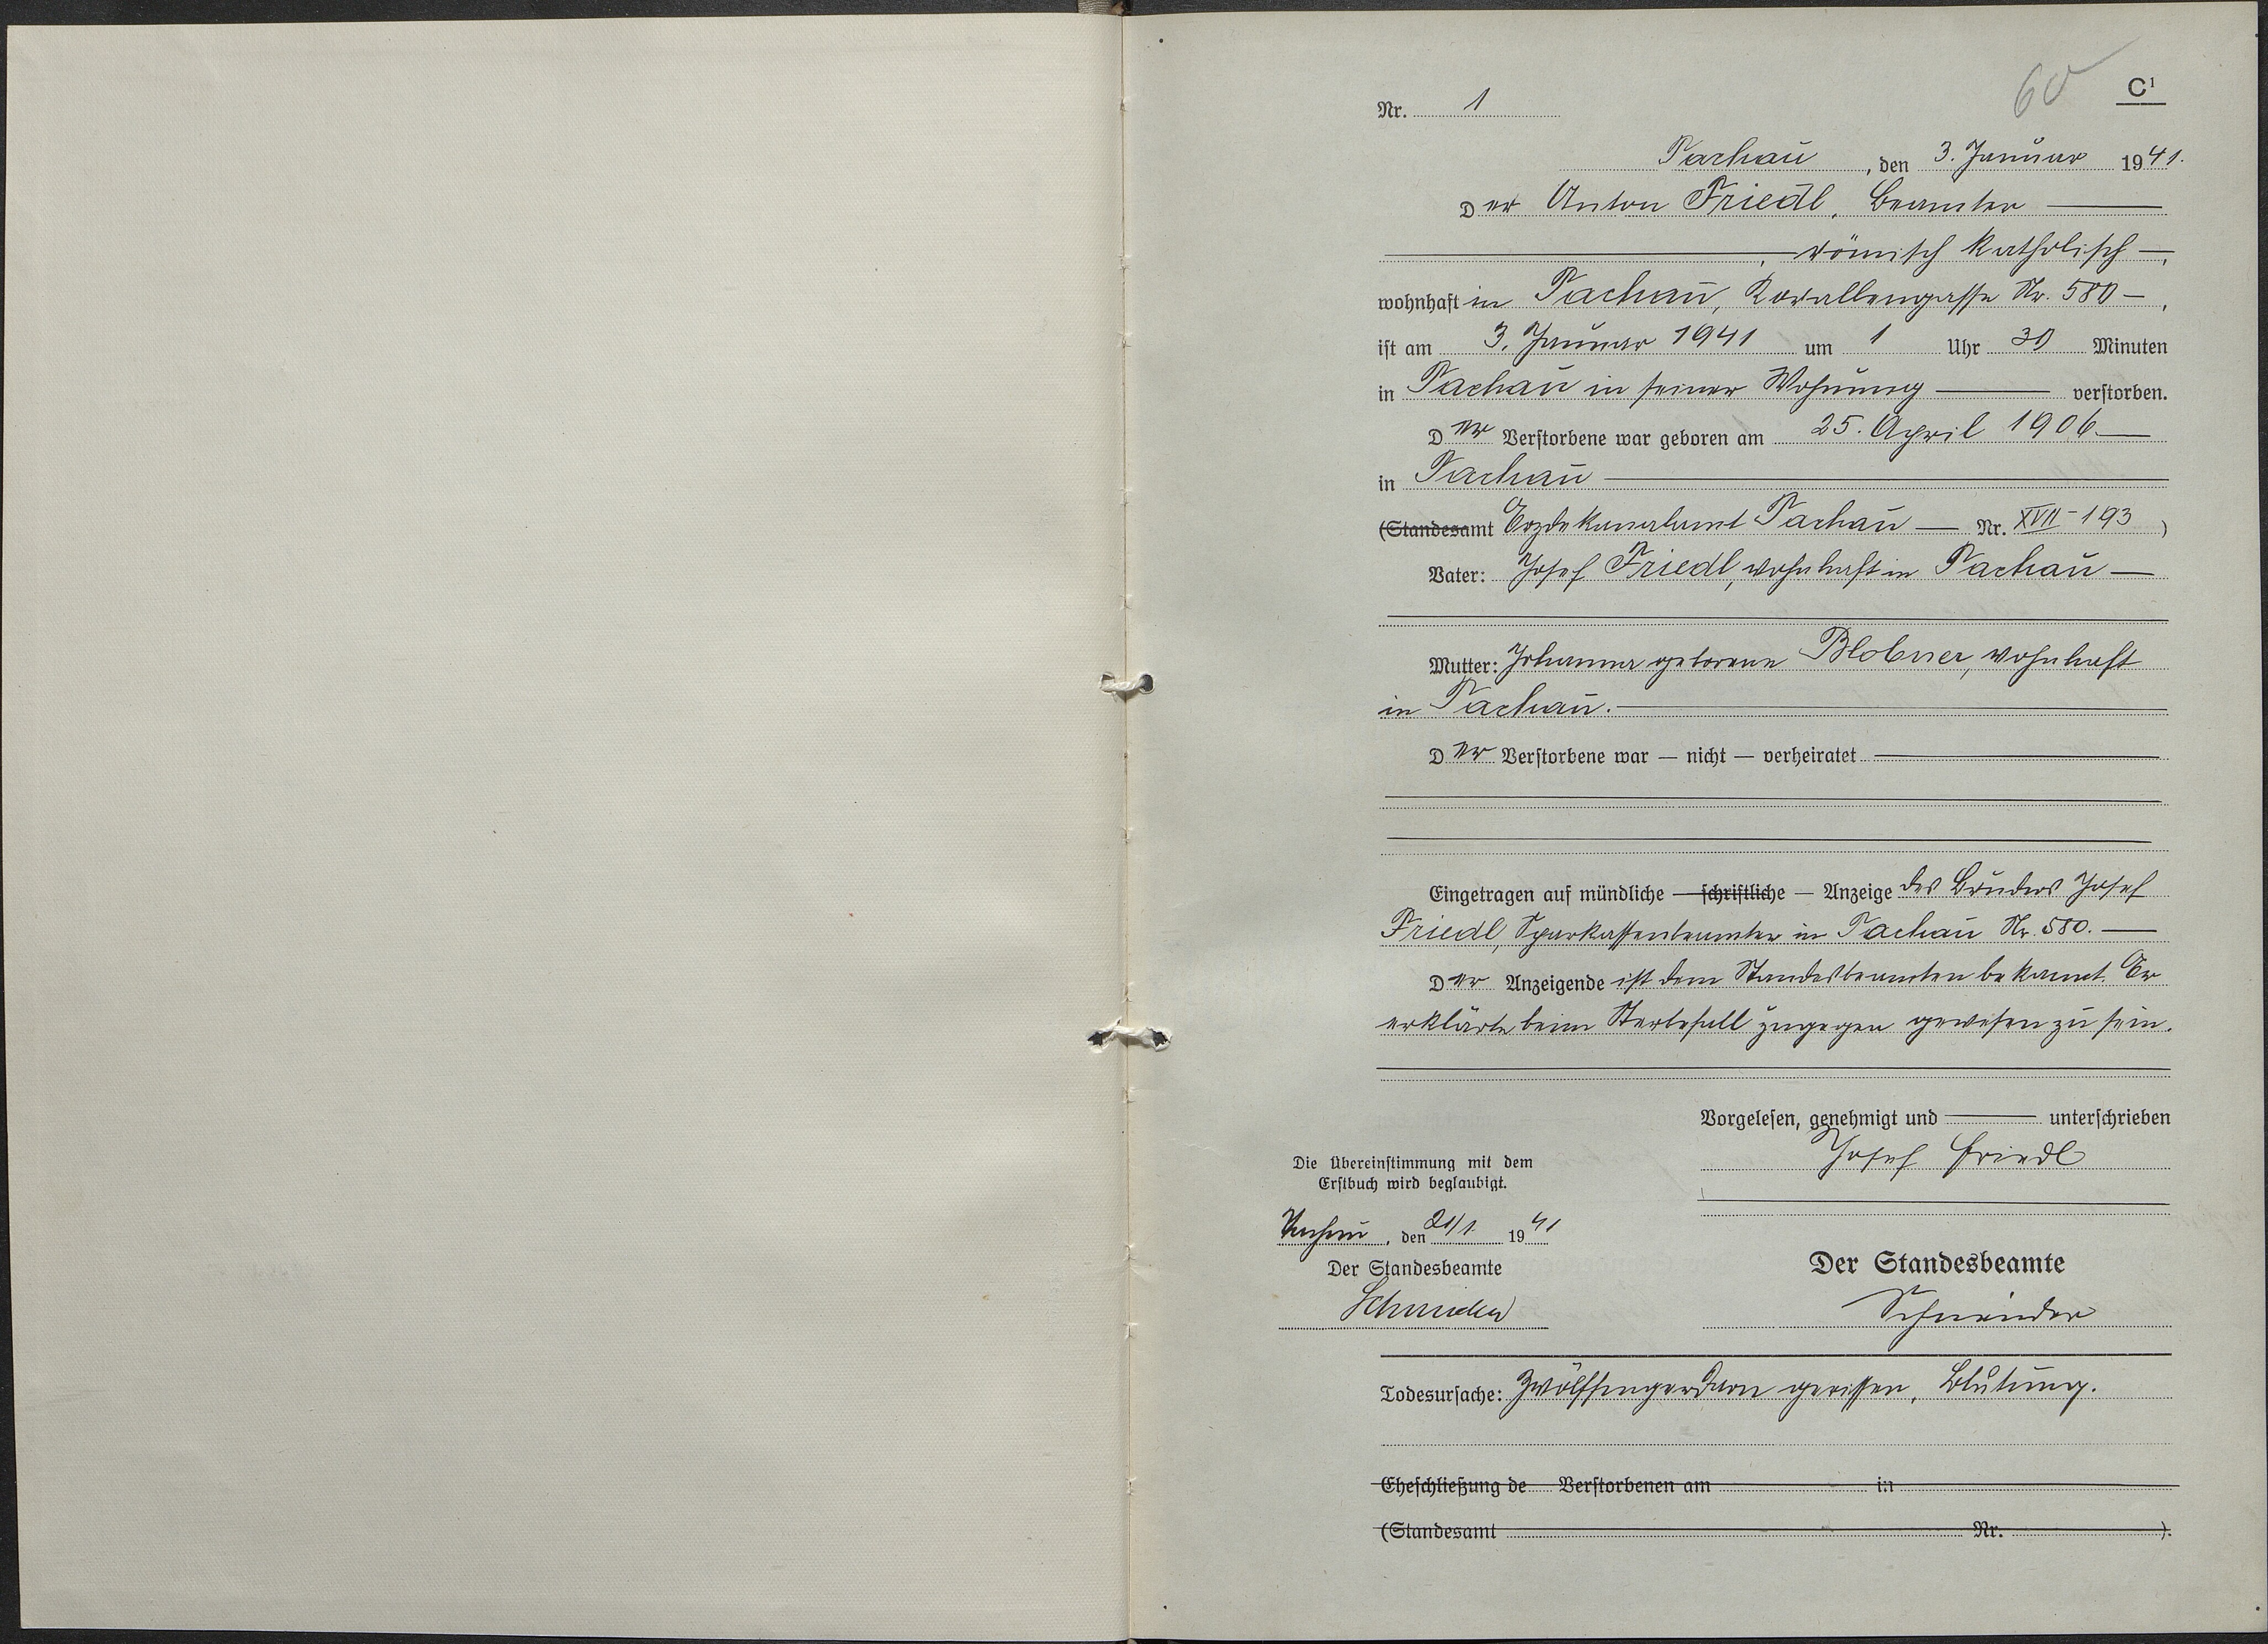 60
C¹
Nr. 1
Tachau, den 3. Januar 1941.
Der Anton Friedl, Beamter
, römisch katholisch,
wohnhaft in Tachau, Korallengasse Nr. 580,
ist am 3. Januar 1941 um 1 Uhr 30 Minuten
in Tachau in seiner Wohnung verstorben.
Der Verstorbene war geboren am 25. April 1906
in Tachau
(Standesamt Erzdekanalamt Tachau — Nr. XVII-193)
Vater: Josef Friedl, wohnhaft in Tachau
Mutter: Johanna geborene Blobner, wohnhaft
in Tachau.
Der Verstorbene war — nicht — verheiratet
Eingetragen auf mündliche — schriftliche — Anzeige des Bruders Josef
Friedl, Sparkassenbeamter in Tachau Nr. 580.
Der Anzeigende ist dem Standesbeamten bekannt. Er
erklärte beim Sterbefall zugegen gewesen zu sein.
Vorgelesen, genehmigt und unterschrieben
Josef Friedl
Die Übereinstimmung mit dem
Erstbuch wird beglaubigt.
Tachau, den 21/1. 1941
Der Standesbeamte
Schneider
Der Standesbeamte
Schneider
Todesursache: Zwölffingerdarm gerissen, Blutung.
Eheschließung de Verstorbenen am in
(Standesamt Nr. ).